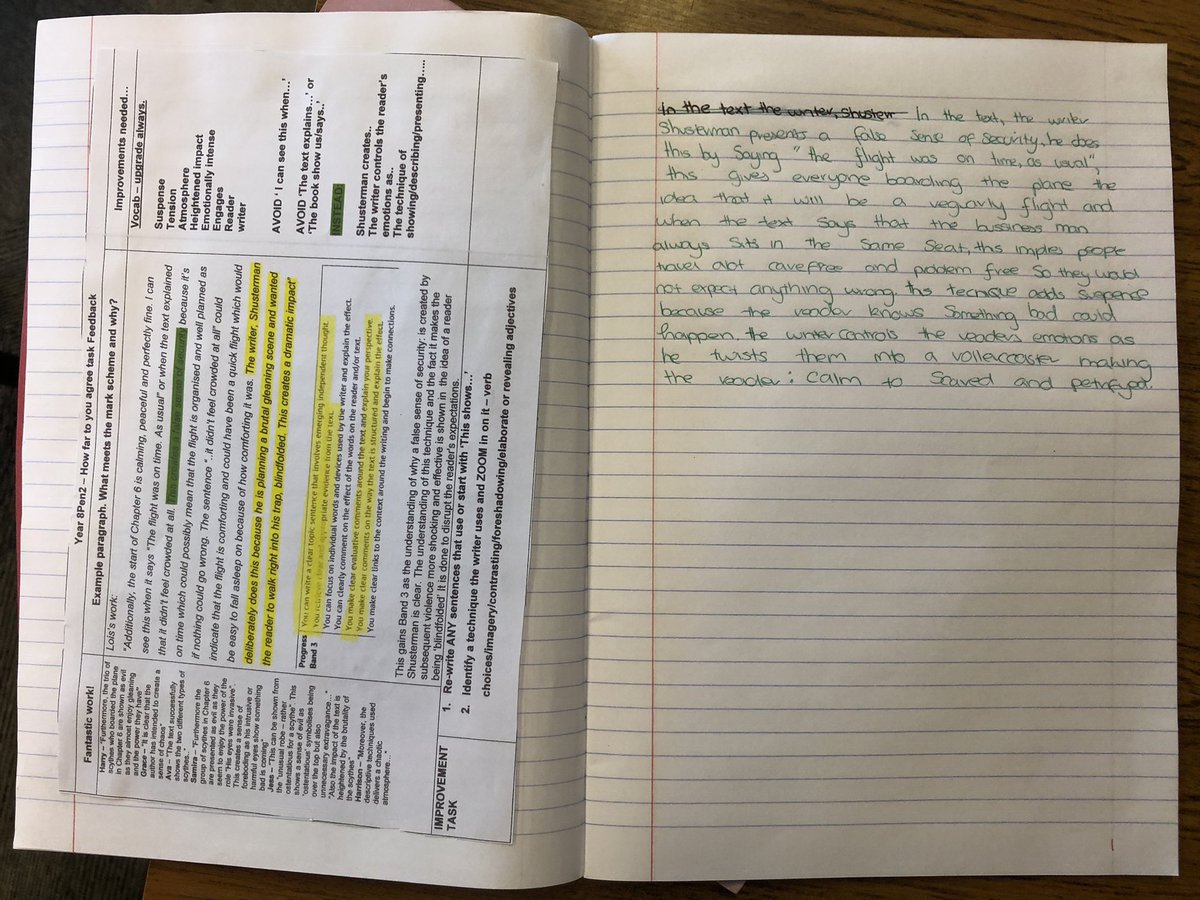 Year 8Pen2 – How far to you agree task Feedback
Fantastic work!
Harry – "Furthermore, the trio of
scythes who boarded the plane
in Chapter 6 are shown as evil
as they almost enjoy gleaning
and the power they have"
Grace – "It is clear that the
author has intended to create a
sense of chaos"
Ava – "The text successfully
shows the two different types of
scythes."
Samira – "Furthermore the
group of scythes in Chapter 6
are presented as evil as they
seem to enjoy the power of the
role "His eyes were invasive".
This creates a sense of
foreboding as his intrusive or
harmful eyes show something
bad is coming"
Jess – "This can be shown from
the "unusual robe – rather
ostentatious for a scythe". This
shows a sense of evil as
'ostentatious' symbolises being
over the top but also
unnecessary extravagance..."
"Also the impact of the text is
heightened by the brutality of
the scythes"
Harrison – "Moreover, the
descriptive techniques used
delivers a chaotic
atmosphere…
Example paragraph. What meets the mark scheme and why?
Lois's work:
"Additionally, the start of Chapter 6 is calming, peaceful and perfectly fine. I can
see this when it says "The flight was on time. As usual" or when the text explained
that it didn't feel crowded at all. This creates a false sense of security because it's
on time which could possibly mean that the flight is organised and well planned as
if nothing could go wrong. The sentence "..it didn't feel crowded at all" could
indicate that the flight is comforting and could have been a quick flight which would
be easy to fall asleep on because of how comforting it was. The writer, Shusterman
deliberately does this because he is planning a brutal gleaning scene and wanted
the reader to walk right into his trap, blindfolded. This creates a dramatic impact"
Progress
Band 3
You can write a clear topic sentence that involves emerging independent thought.
You retrieve clear and appropriate evidence from the text.
You can focus on individual words and devices used by the writer and explain the effect.
You can clearly comment on the effect of the words on the reader and/or text.
You make clear evaluative comments around the text and explain your perspective
You make clear comments on the way the text is structured and explain the effect.
You make clear links to the context around the writing and begin to make connections.
This gains Band 3 as the understanding of why a false sense of security: is created by
Shusterman is clear. The understanding of this technique and the fact it makes the
subsequent violence more shocking and effective is shown in the idea of a reader
being 'blindfolded' it is done to disrupt the reader's expectations.
Improvements needed…
Vocab – upgrade always.
Suspense
Tension
Atmosphere
Heightened impact
Emotionally intense
Engages
Reader
writer
AVOID ' I can see this when…'
AVOID 'The text explains…' or
'The book show us/says..'
INSTEAD:
Shusterman creates..
The writer controls the reader's
emotions as..
The technique of
showing/describing/presenting…..
IMPROVEMENT
TASK
1. Re-write ANY sentences that use or start with 'This shows…'
2. Identify a technique the writer uses and ZOOM in on it – verb
choices/imagery/contrasting/foreshadowing/elaborate or revealing adjectives
In the text the writer, Shusterr In the text, the writer
Shusterman presents a false sense of security, he does
this by saying "the flight was on time, as usual",
this gives everyone boarding the plane the
idea that it will be a regularly flight and
when the text says that the bussiness man
always sits in the same seat, this implies people
travel alot carefree and problem free so they would
not expect anything wrong. this tecnique adds suspense
because the reader knows something bad could
happen. the writer controls the readers emotions as
he twists them into a rollercoaster making
the reader: calm to scared and petrafyed.